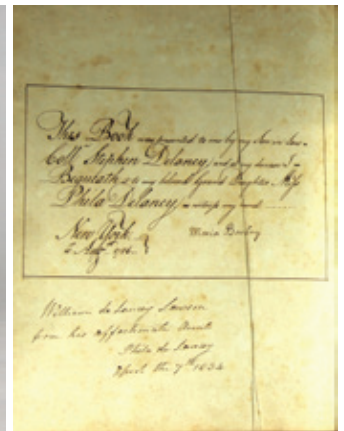 This Book was presented to me by my Son in Law
Coll. Stephen Delancy, and at my decease I
Bequeath it to my beloved Grand Daughter Miss
Phila Delancy, as witness my hand
New York
Maria
2 Augst
William de Lancey Lawson
from his affectionate Aunt
Phila de Lancey
April the 7th 1834